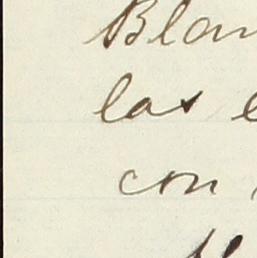 Blan
las
con